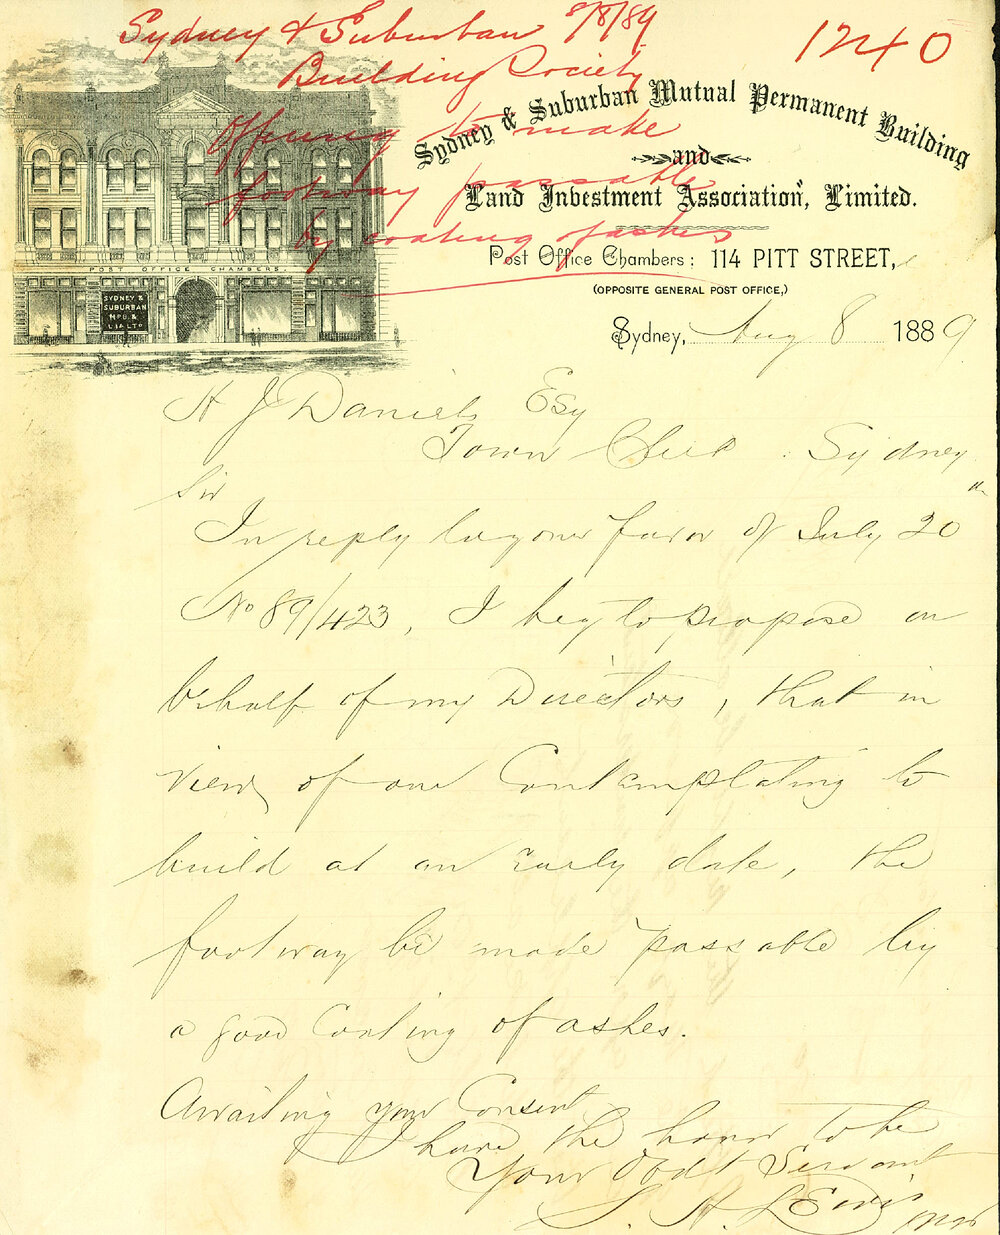 Sydney & Suburban 8/8/89
1240
Building Society
Offering to make
footway passable
by coating of ashes
Sydney & Suburban Mutual Permanent Building
and
Land Investment Association, Limited.
Post Office Chambers: 114 PITT STREET,
(OPPOSITE GENERAL POST OFFICE,)
POST OFFICE CHAMBERS.
SYDNEY &
SUBURBAN
M.P.B. &
L.I.A. LTD
Sydney, Aug 8 1889
H J Daniels Esq
Town Clerk. Sydney
Sir
In reply to your favor of July 20th
No 89/423, I beg to propose on
behalf of my Directors, that in
view of our Contemplating to
build at an Early date, the
footway be made passable by
a good Coating of ashes.
Awaiting your Consent
I have the honor to be
Your Obdt Servant
S. H. Lewis